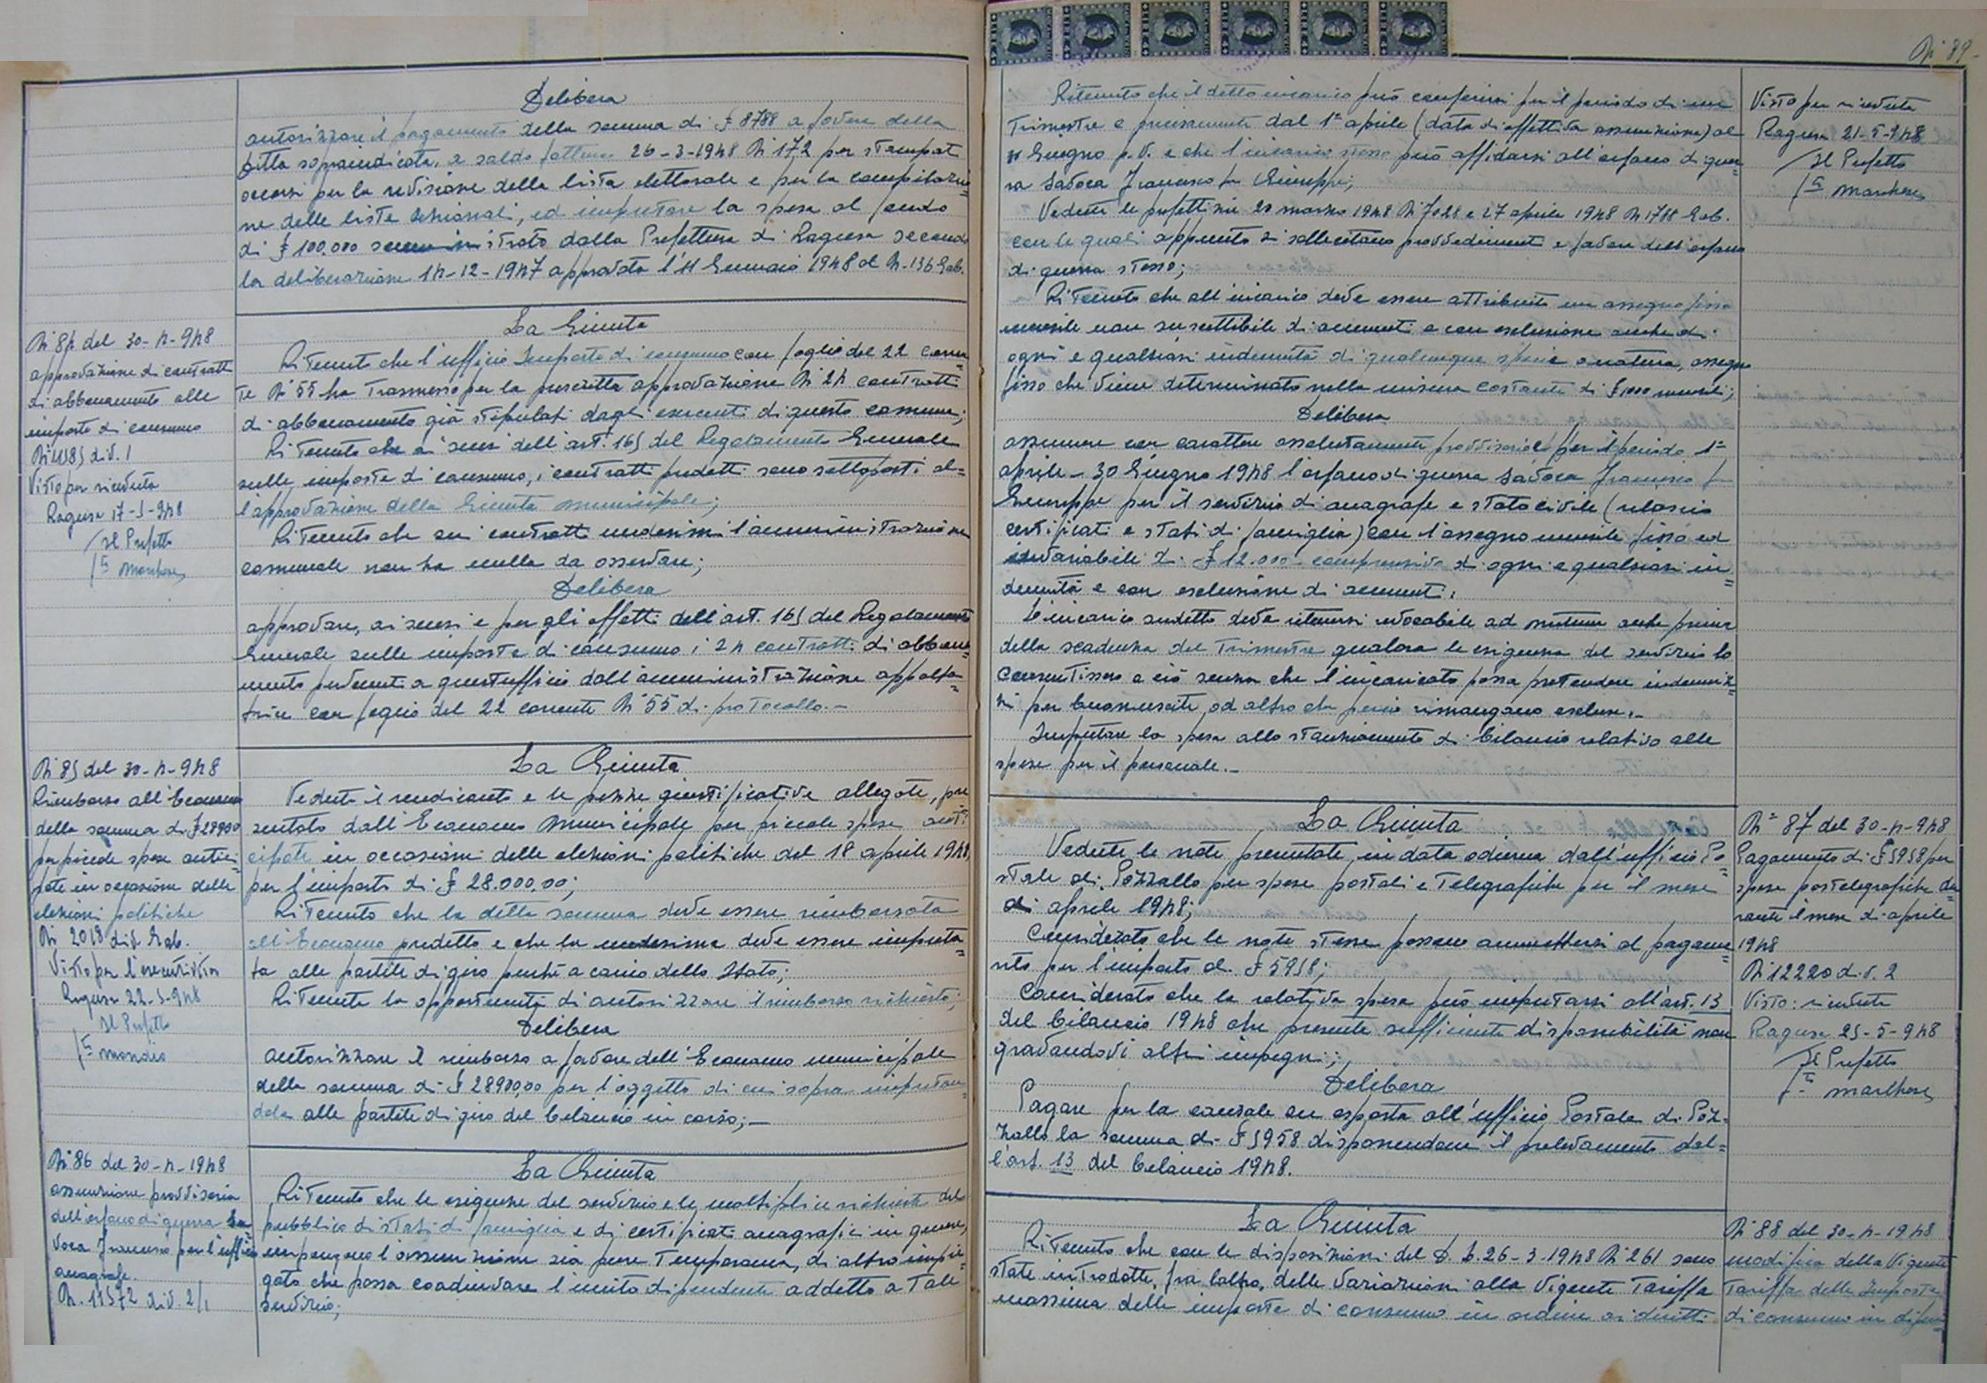 Delibera
autorizzare il pagamento della somma di £ 8788 a favore della
Ditta sopraindicata, a saldo fattura 26-3-1948 N 172 per stampati
occorsi per la revisione della lista elettorale e per la compilazio=
ne delle liste sezionali, ed imputare la spesa al fondo
di £ 100.000 somministrato dalla Prefettura di Ragusa secondo
la deliberazione 14-12-1947 approvata l'11 Gennaio 1948 al N. 136 Gab.
N° 84 del 30-4-948
approvazione di contratti
di abbonamento alle
imposte di consumo
div. 1
Visto per ricevuta
Ragusa 17-5-948
Il Prefetto
La Giunta
Ritenuto che l'ufficio Imposte di consumo con foglio del 22 corren
te N° 55 ha trasmesso per la prescritta approvazione N° 24 contratti
di abbonamento già stipulati dagli esercenti di questo comune;
Ritenuto che ai sensi dell'art. 165 del Regolamento Generale
sulle imposte di consumo, i contratti predetti sono sottoposti al=
l'approvazione della Giunta Municipale;
Ritenuto che sui contratti medesimi l'amministrazione
comunale non ha nulla da osservare;
Delibera
approvare, ai sensi e per gli effetti dell'art. 165 del Regolamento
Generale sulle imposte di consumo i 24 contratti di abbona=
mento pervenuti a quest'ufficio dall'amministrazione appalta=
trice con foglio del 22 corrente N° 55 di protocollo.-
N° 85 del 30-4-948
Rimborso all'Economo
della somma di £ 28900
per piccole spese antici
pate in occasione delle
elezioni politiche
N. 2018 div. Gab.
Visto per l'esecutività
Ragusa 22-5-948
Il Prefetto
La Giunta
Veduti il rendiconto e le pezze giustificative allegate, pre
sentato dall'Economo Municipale per piccole spese anti
cipate in occasione delle elezioni politiche del 18 aprile 1948,
per l'importo di £ 28.000,00;
Ritenuto che la detta somma deve essere rimborsata
all'Economo predetto e che la medesima deve essere imputa
ta alle partite di giro perché a carico dello Stato;
Ritenuta la opportunità di autorizzare il rimborso richiesto;
Delibera
autorizzare il rimborso a favore dell'Economo municipale
della somma di £ 28900,00 per l'oggetto di cui sopra imputan=
dola alle partite di giro del bilancio in corso;-
N° 86 del 30-4-1948
assunzione provvisoria
dell'orfano di guerra Sa
voca Francesco per l'ufficio
anagrafe.
N. 11572 div. 2/1
La Giunta
Ritenuto che le esigenze del servizio e le molteplici richieste del
pubblico di stati di famiglia e di certificati anagrafici in genere,
impongono l'assunzione sia pure temporanea, di altro impie=
gato che possa coadiuvare l'unico dipendente addetto a tale
servizio;
N° 89
Ritenuto che il detto incarico può conferirsi per il periodo di un
trimestre e precisamente dal 1° aprile (data di effettiva assunzione) al
Giugno p.v. e che l'incarico stesso può affidarsi all'orfano di guer
ra Savoca Francesco fu Giuseppe;
Vedute le prefettizie 20 marzo 1948 N° 7028 e 27 aprile 1948 N. 1711 Gab.
con le quali appunto si sollecitano provvedimenti a favore dell'orfano
di guerra stesso;
Ritenuto che all'incarico deve essere attribuito un assegno fisso
mensile non suscettibile di aumenti e con esclusione anche di
ogni e qualsiasi indennità di qualunque specie o natura, assegno
fisso che viene determinato nella misura costante di £ 12.000 mensili;
Delibera
assumere con carattere assolutamente provvisorio per il periodo 1°
aprile - 30 Giugno 1948 l'orfano di guerra Savoca Francesco fu
Giuseppe per il servizio di anagrafe e stato civile (rilascio
certificati e stati di famiglia) con l'assegno mensile fisso ed
invariabile di £ 12.000 comprensivo di ogni e qualsiasi in
dennità e con esclusione di aumenti.
L'incarico suddetto deve ritenersi revocabile ad nutum anche prima
della scadenza del trimestre qualora le esigenze del servizio lo
consentissero e ciò senza che l'incaricato possa pretendere indenniz=
zi per buonuscite od altro che perciò rimangono escluse.-
Imputare la spesa allo stanziamento di bilancio relativo alle
spese per il personale.-
Visto per ricevuta
Ragusa 21-5-948
Il Prefetto
La Giunta
Vedute le note presentate in data odierna dall'ufficio Po=
stale di Pozzallo per spese postali e telegrafiche per il mese
di aprile 1948;
Considerato che le note stesse possono ammettersi al pagame=
nto per l'importo di £ 5958;
Considerato che la relativa spesa può imputarsi all'art. 13
del bilancio 1948 che presenta sufficiente disponibilità non
gravandovi altri impegni;
Delibera
Pagare per la causale su esposta all'ufficio Postale di Poz=
zallo la somma di £ 5958 disponendone il prelevamento dal=
l'art. 13 del bilancio 1948.
N° 87 del 30-4-948
Pagamento di £ 5958 per
spese postelegrafiche du
rante il mese di aprile
1948
N 12220 div. 2
Visto: ricevuta
Ragusa 25-5-948
Il Prefetto
La Giunta
Ritenuto che con le disposizioni del D.L. 26-3-1948 N° 261 sono
state introdotte, fra l'altro, delle variazioni alla vigente tariffa
massima delle imposte di consumo in ordine ai diritti
N° 88 del 30-4-1948
modifica della vigente
tariffa delle imposte
di consumo in dipen=